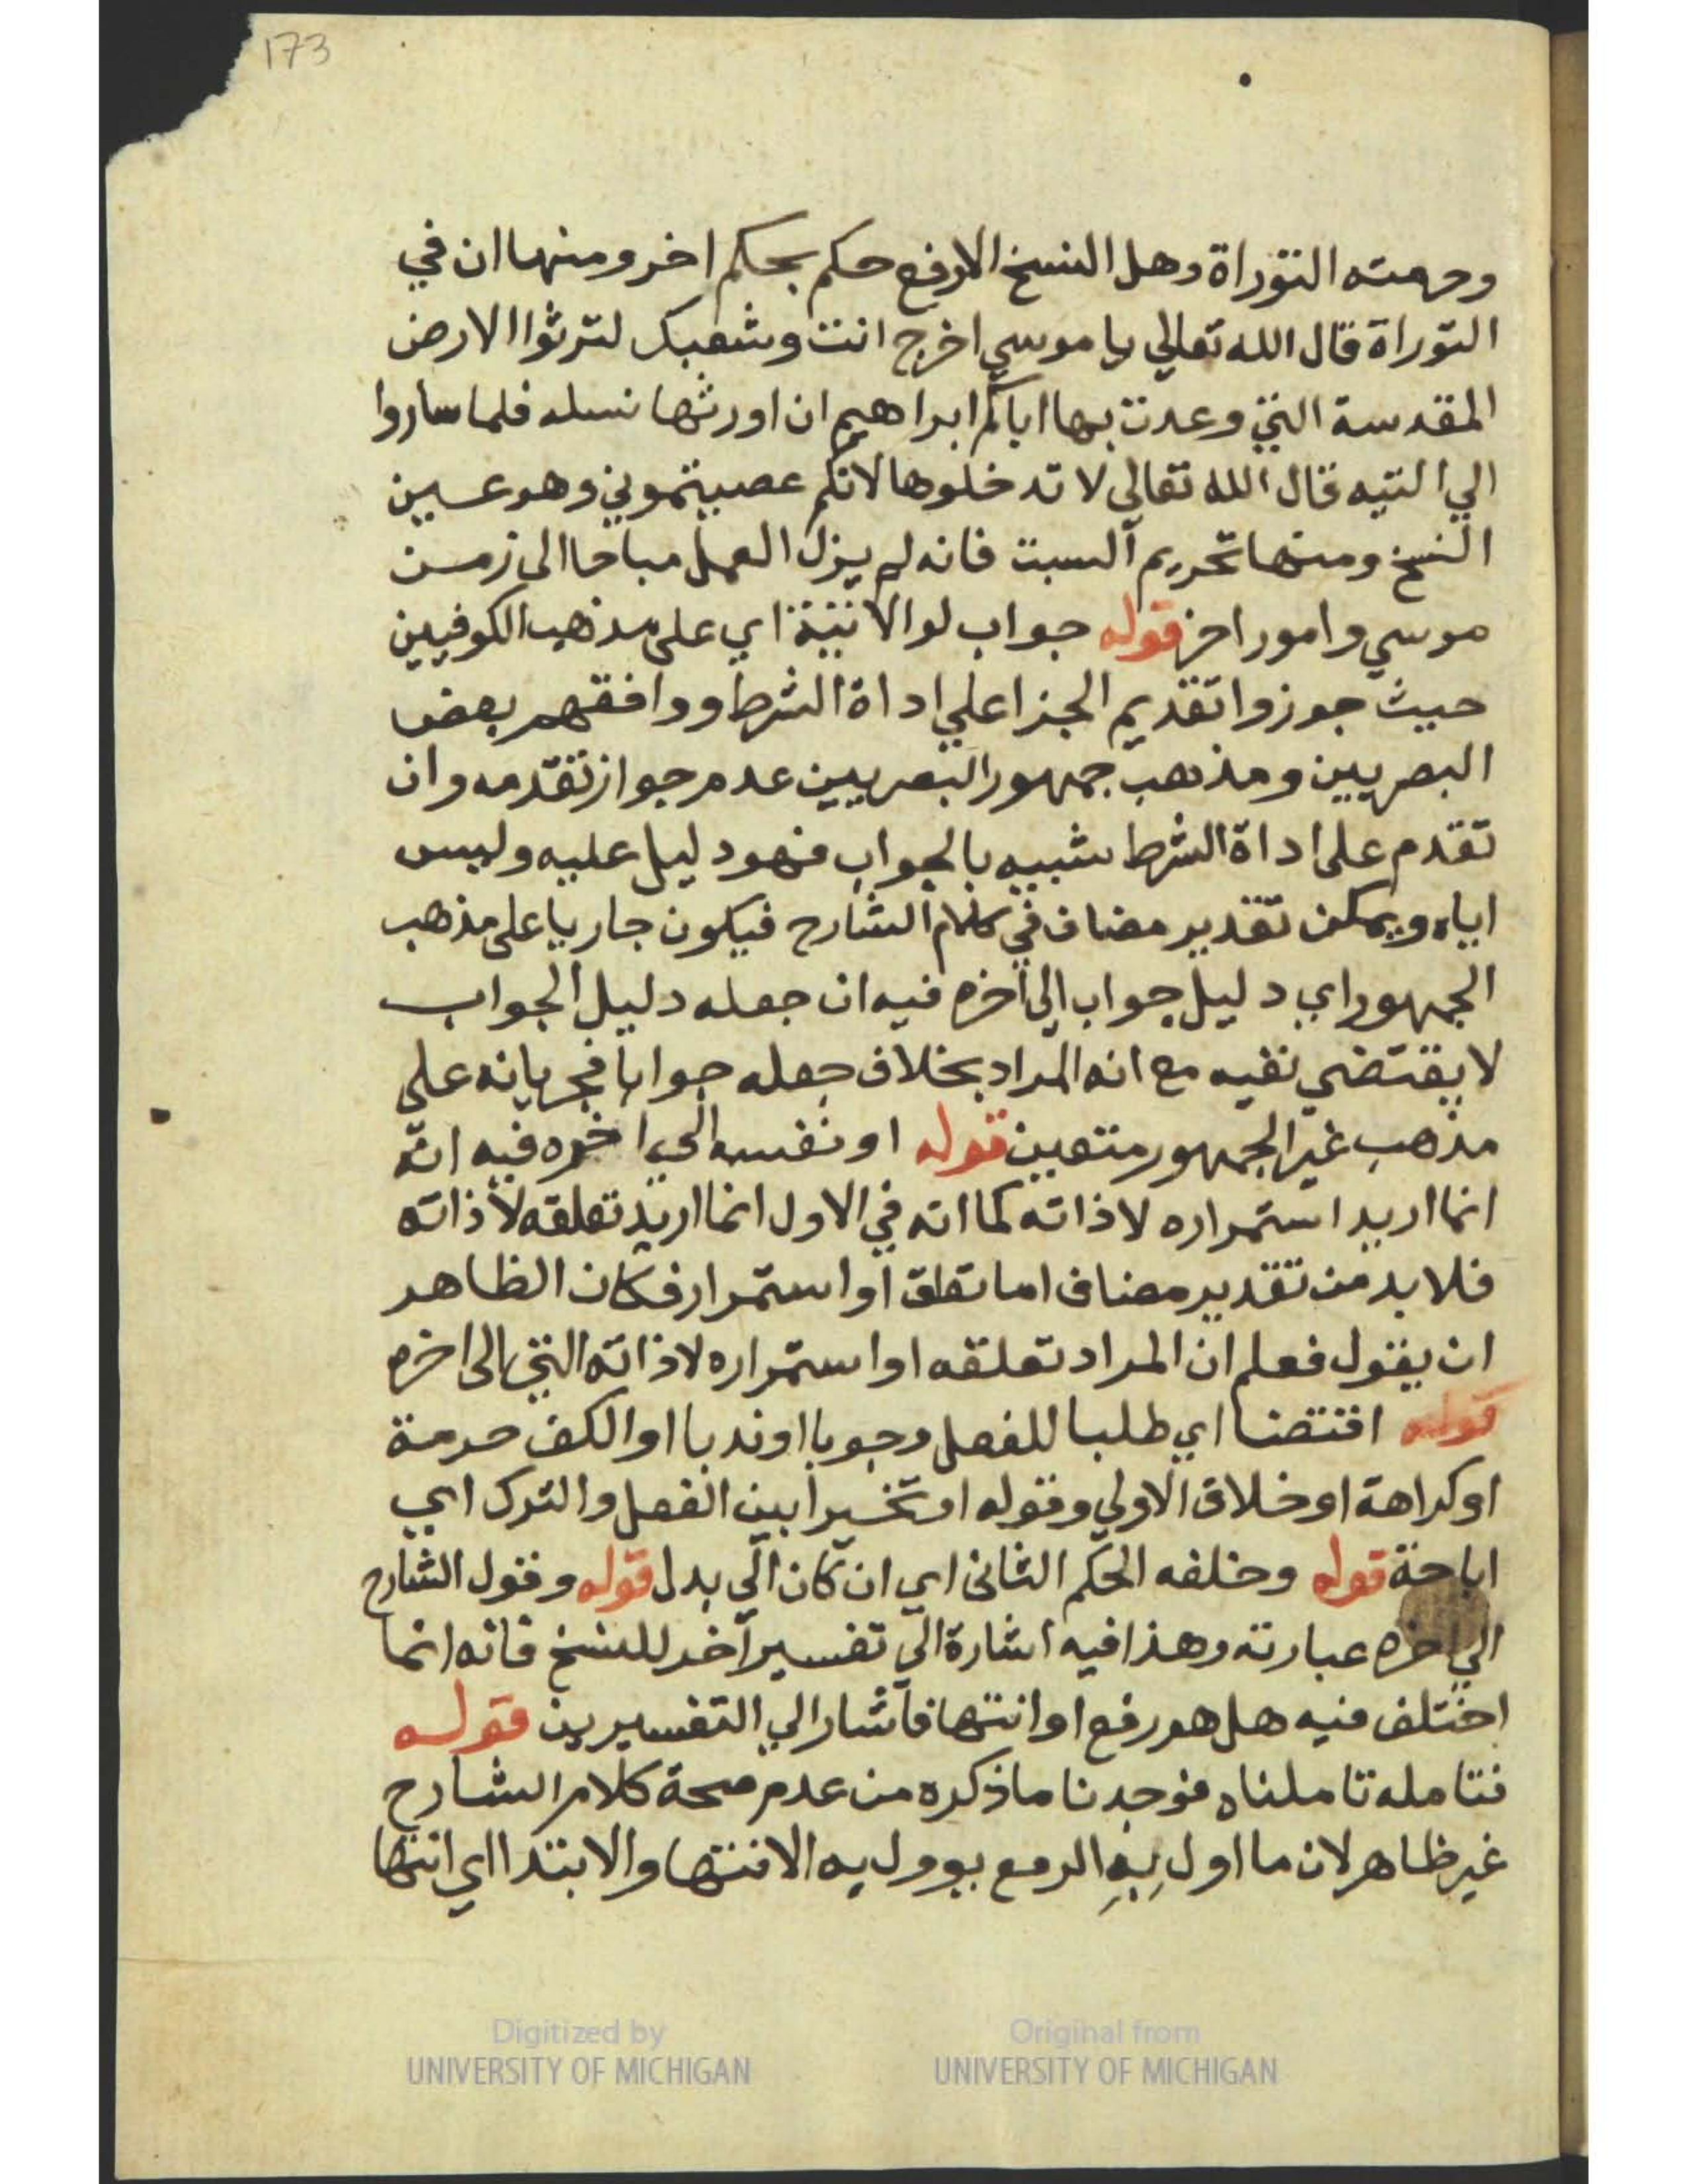 173
وحرمته التوراة وهل النسخ الا رفع حكم بحكم اخر ومنها ان في
التوراة قال الله تعالي يا موسي اخرج انت وشعبك لترثوا الارض
المقدسة التي وعدت بها اباكم ابراهيم ان اورثها نسله فلما ساروا
الي التيه قال الله تعالي لا تدخلوها لانكم عصيتموني وهو عين
النسخ ومنها تحريم السبت فانه لم يزل العمل مباحا الى زمن
موسي وامور اخر قوله جواب لو الاتية اي على مذهب الكوفيين
حيث جوزوا تقديم الجزا علي اداة الشرط ووافقهم بعض
البصريين ومذهب جمهور البصريين عدم جواز تقدمه وان
تقدم على اداة الشرط شبيه بالجواب فهو دليل عليه وليس
اياه ويمكن تقدير مضاف في كلام الشارح فيكون جاريا على مذهب
الجمهور اي دليل جواب الى اخره فيه ان جعله دليل الجواب
لا يقتضي نفيه مع انه المراد بخلاف جعله جوابا فجريانه على
مذهب غير الجمهور متعين قوله او نفسه الي اخره فيه انه
انما اريد استمراره لا ذاته كما انه في الاول انما اريد تعلقه لا ذاته
فلا بد من تقدير مضاف اما تعلق او استمرار فكان الظاهر
ان يقول فعلم ان المراد تعلقه او استمراره لا ذاته التي الى اخره
قوله اقتضا اي طلبا للفعل وجوبا او ندبا او الكف حرمة
او كراهة او خلاف الاولي وقوله او تخييرا بين الفعل والترك اي
اباحة قوله وخلفه الحكم الثاني اي ان كان الي بدل قوله وقول الشارح
الي اخره عبارته وهذا فيه اشارة الي تفسير آخر للنسخ فانه انما
اختلف فيه هل هو رفع او انتها فاشار الي التفسيرين قوله
فتامله تاملناه فوجدنا ما ذكره من عدم صحة كلام الشارح
غير ظاهر لان ما اول بِهِ الرفع يوول به الانتها والابتدا اي انتها
Digitized by
UNIVERSITY OF MICHIGAN
Original from
UNIVERSITY OF MICHIGAN